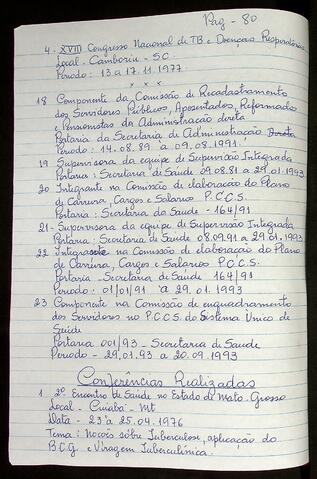 Pag - 80
4. XVII Congresso Nacional de TB e Doenças Respiratórias
Local - Camboriu - SC
Periodo: 13 a 17.11.1977
x x x
18 Componente da Comissão de Recadastramento
dos Servidores Públicos, Aposentados, Reformados
e Pensionistas da Administração direta
Portaria da Secretaria de Administração Direta
Periodo: 14.08.89 a 09.08.1991.
19 Supervisora da equipe de Supervisão Integrada
Portaria: Secretaria de Saúde 09.08.81 a 29.01.1993
20 Integrante na Comissão de elaboração do Plano
de Carreira, Cargos e Salários P.C.C.S.
Portaria: Secretaria da Saúde - 164/91
21 - Supervisora da equipe de Supervisão Integrada
Portaria: Secretaria de Saúde 08.09.91 a 29.01.1993
22 Integrante na Comissão de elaboração do Plano
de Carreira, Cargos e Salarios P.C.C.S.
Portaria - Secretaria de Saúde 164/91
Periodo: 01/01/91 a 29.01.1993
23 Componente na Comissão de enquadramento
dos Servidores no P.C.C.S. do Sistema Único de
Saúde
Portaria 001/93 - Secretaria de Saude
Periodo - 29.01.93 a 20.09.1993
Conferências Realizadas
1 2º Encontro de Saúde no Estado de Mato Grosso
Local - Cuiabá - Mt
Data - 23 a 25.04.1976
Tema: Noções sôbre Tuberculose, aplicação do
B.C.G. e Viragem Tuberculínica.